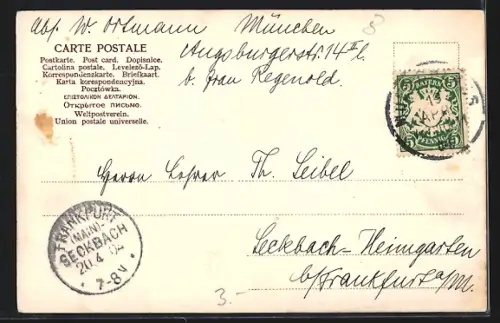 Abs. W. Ortmann München
Augsburgerstr. 14 II l.
b. Frau Regenold
CARTE POSTALE
Postkarte. Post card. Dopisnice.
Cartolina postale. Levelező-Lap.
Korrespondenzkarte. Briefkaart.
Karta korespondencyjna.
Pocztówka.
ΕΠΙΣΤΟΛΙΚΟΝ ΔΕΛΤΑΡΙΟΝ.
Открытое письмо.
Weltpostverein.
Union postale universelle.
5 BAYERN 5
5 PFENNIG 5
Herrn Lehrer Th. Seibel
Seckbach-Heimgarten
b/Frankfurt a/M.
FRANKFURT
(MAIN)-
SECKBACH
20 4 04
7-8 V
3.-